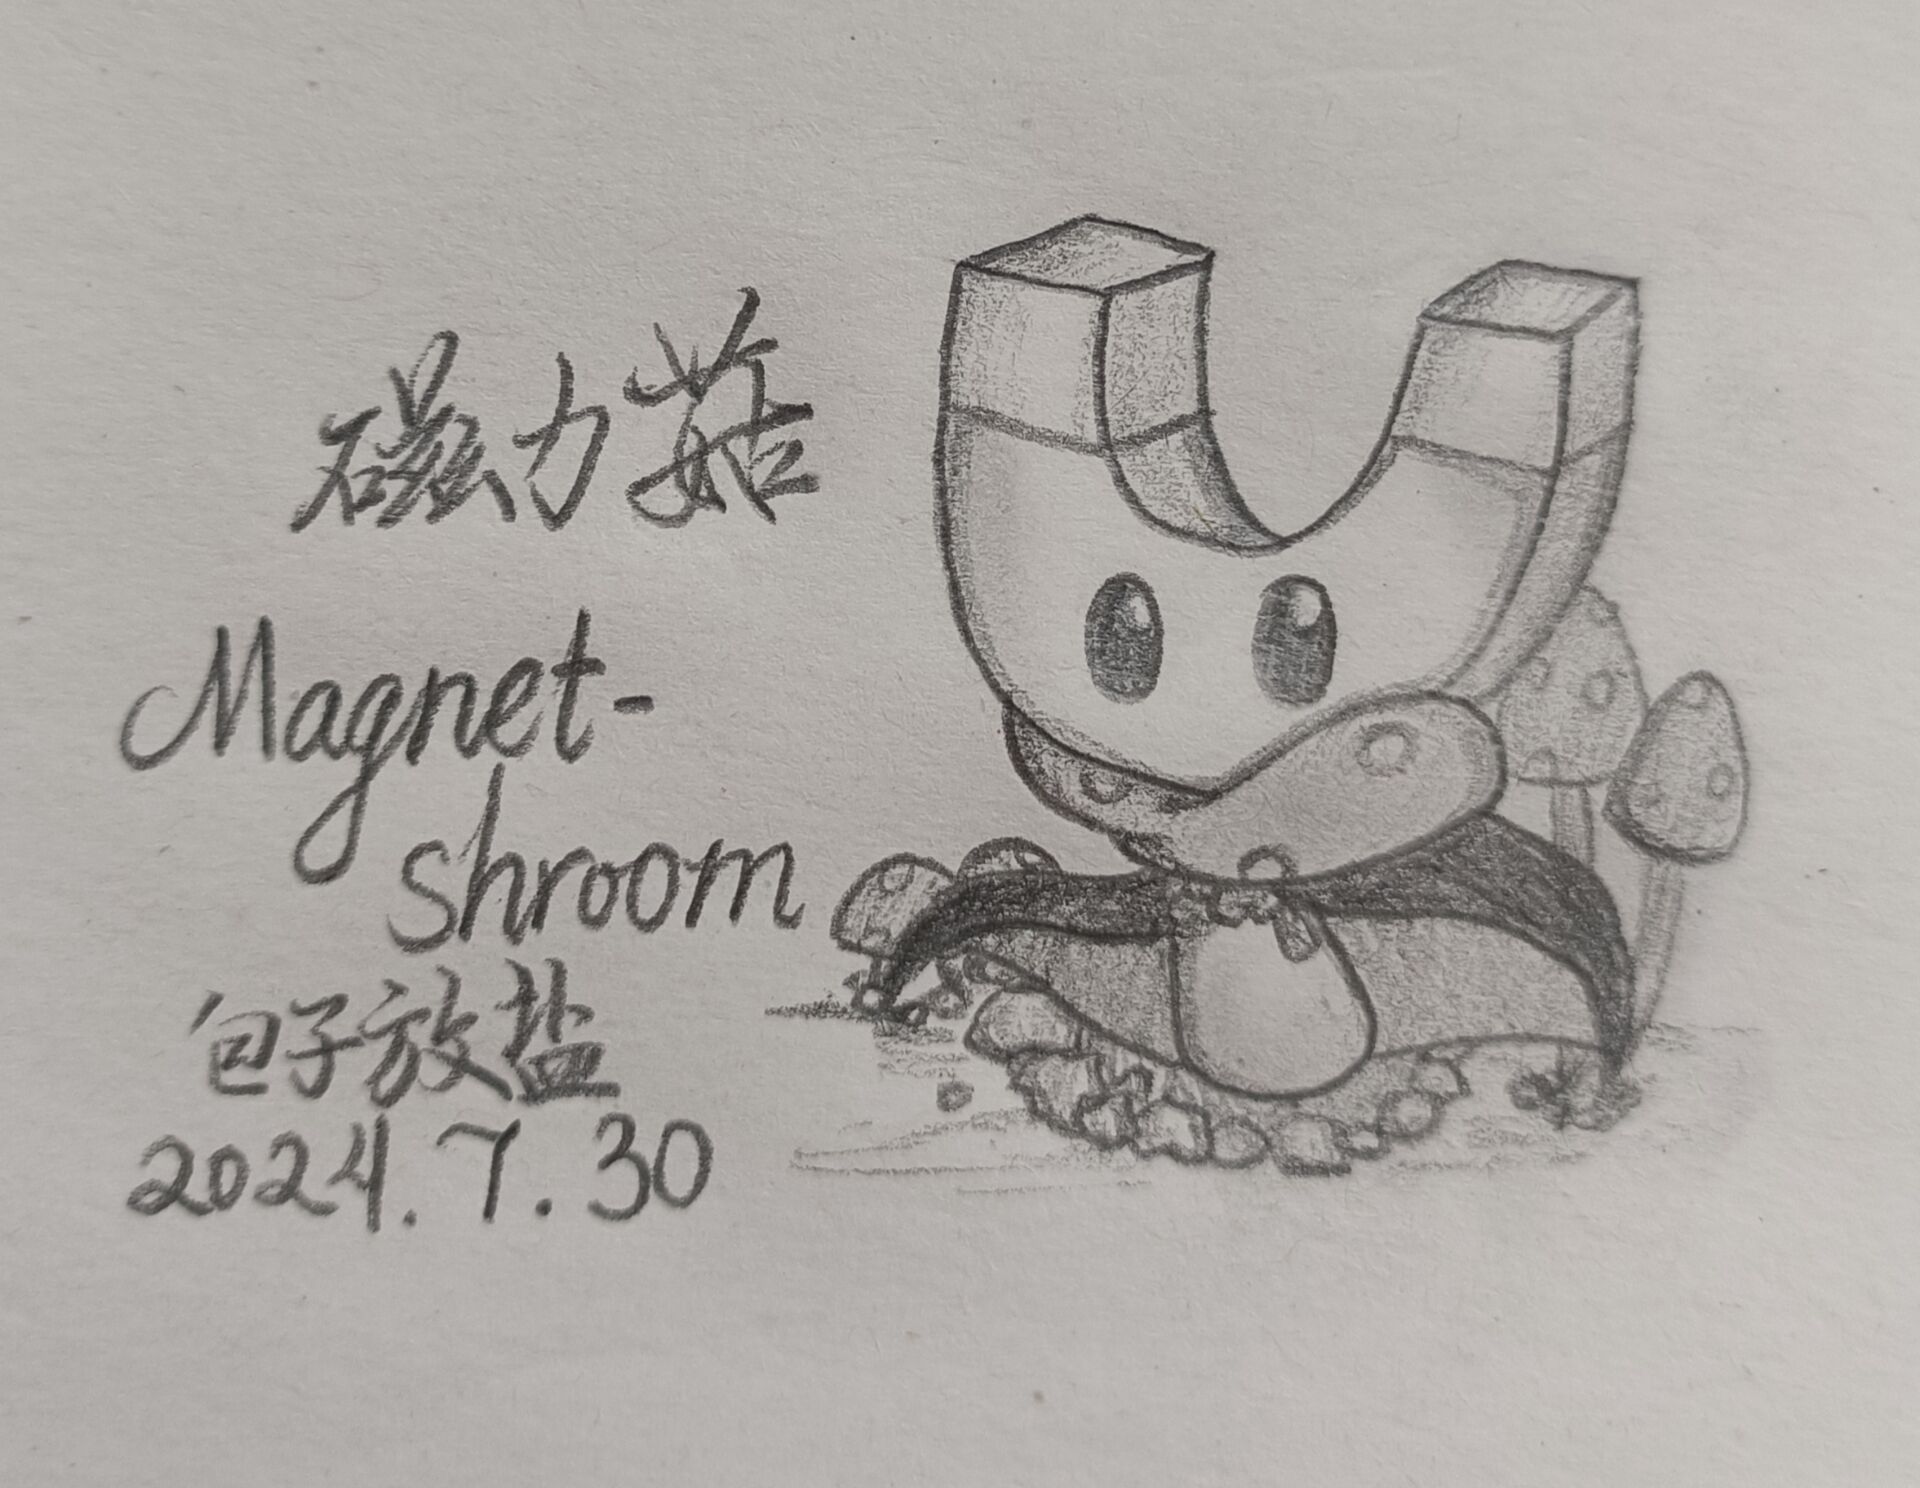 磁力菇
Magnet-
shroom
包子放盐
2024.7.30